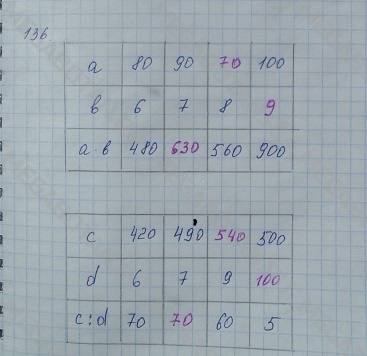 136
a 80 90 70 100
b 6 7 8 9
a·b 480 630 560 900
c 420 490 540 500
d 6 7 9 100
c:d 70 70 60 5